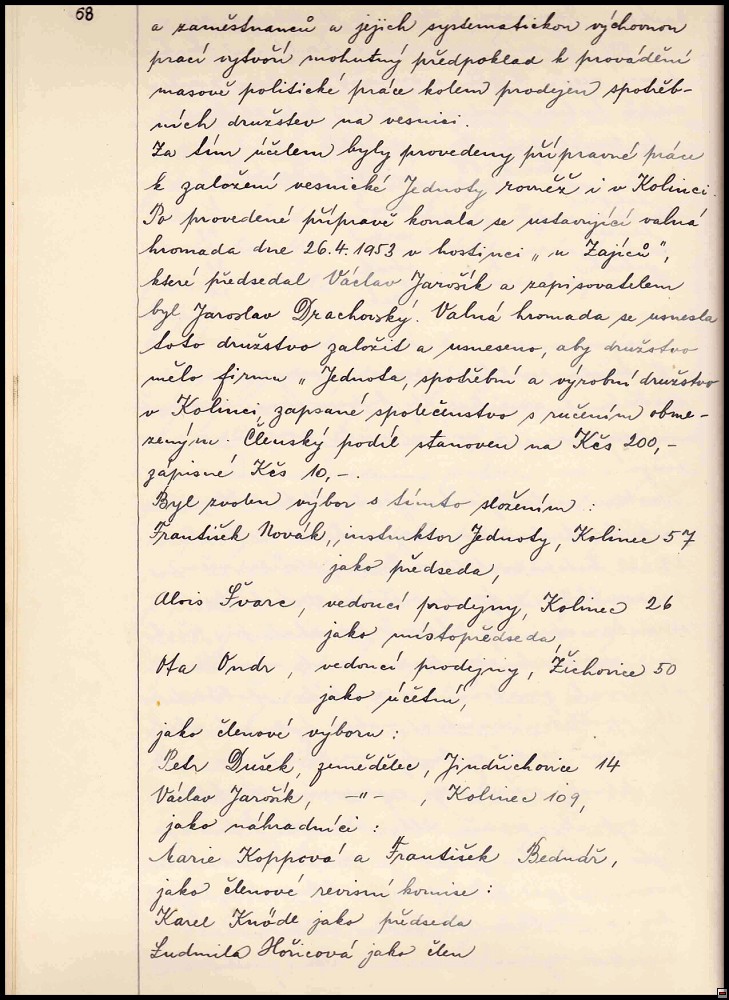 68
a zaměstnanců a jejich systematickou výchovnou
prací vytvoří mohutný předpoklad k provádění
masově politické práce kolem prodejen spotřeb-
ních družstev na vesnici.
Za tím účelem byly provedeny přípravné práce
k založení vesnické Jednoty rovněž i v Kolinci.
Po provedené přípravě konala se ustavující valná
hromada dne 26.4.1953 v hostinci „u Zajíců",
které předsedal Václav Jarošík a zapisovatelem
byl Jaroslav Drachovský. Valná hromada se usnesla
toto družstvo založit a usneseno, aby družstvo
mělo firmu „Jednota, spotřební a výrobní družstvo
v Kolinci, zapsané společenstvo s ručením obme-
zeným. Členský podíl stanoven na Kčs 200,-
zápisné Kčs 10,-.
Byl zvolen výbor s tímto složením:
František Novák, instruktor Jednoty, Kolinec 57
jako předseda,
Alois Švarc, vedoucí prodejny, Kolinec 26
jako místopředseda,
Ota Ondr, vedoucí prodejny, Žichovice 50
jako účetní,
jako členové výboru:
Petr Dušek, zemědělec, Jindřichovice 14
Václav Jarošík, -"- , Kolinec 109,
jako náhradníci:
Marie Koppová a František Bednář,
jako členové revisní komise:
Karel Knödl jako předseda
Ludmila Hořicová jako člen